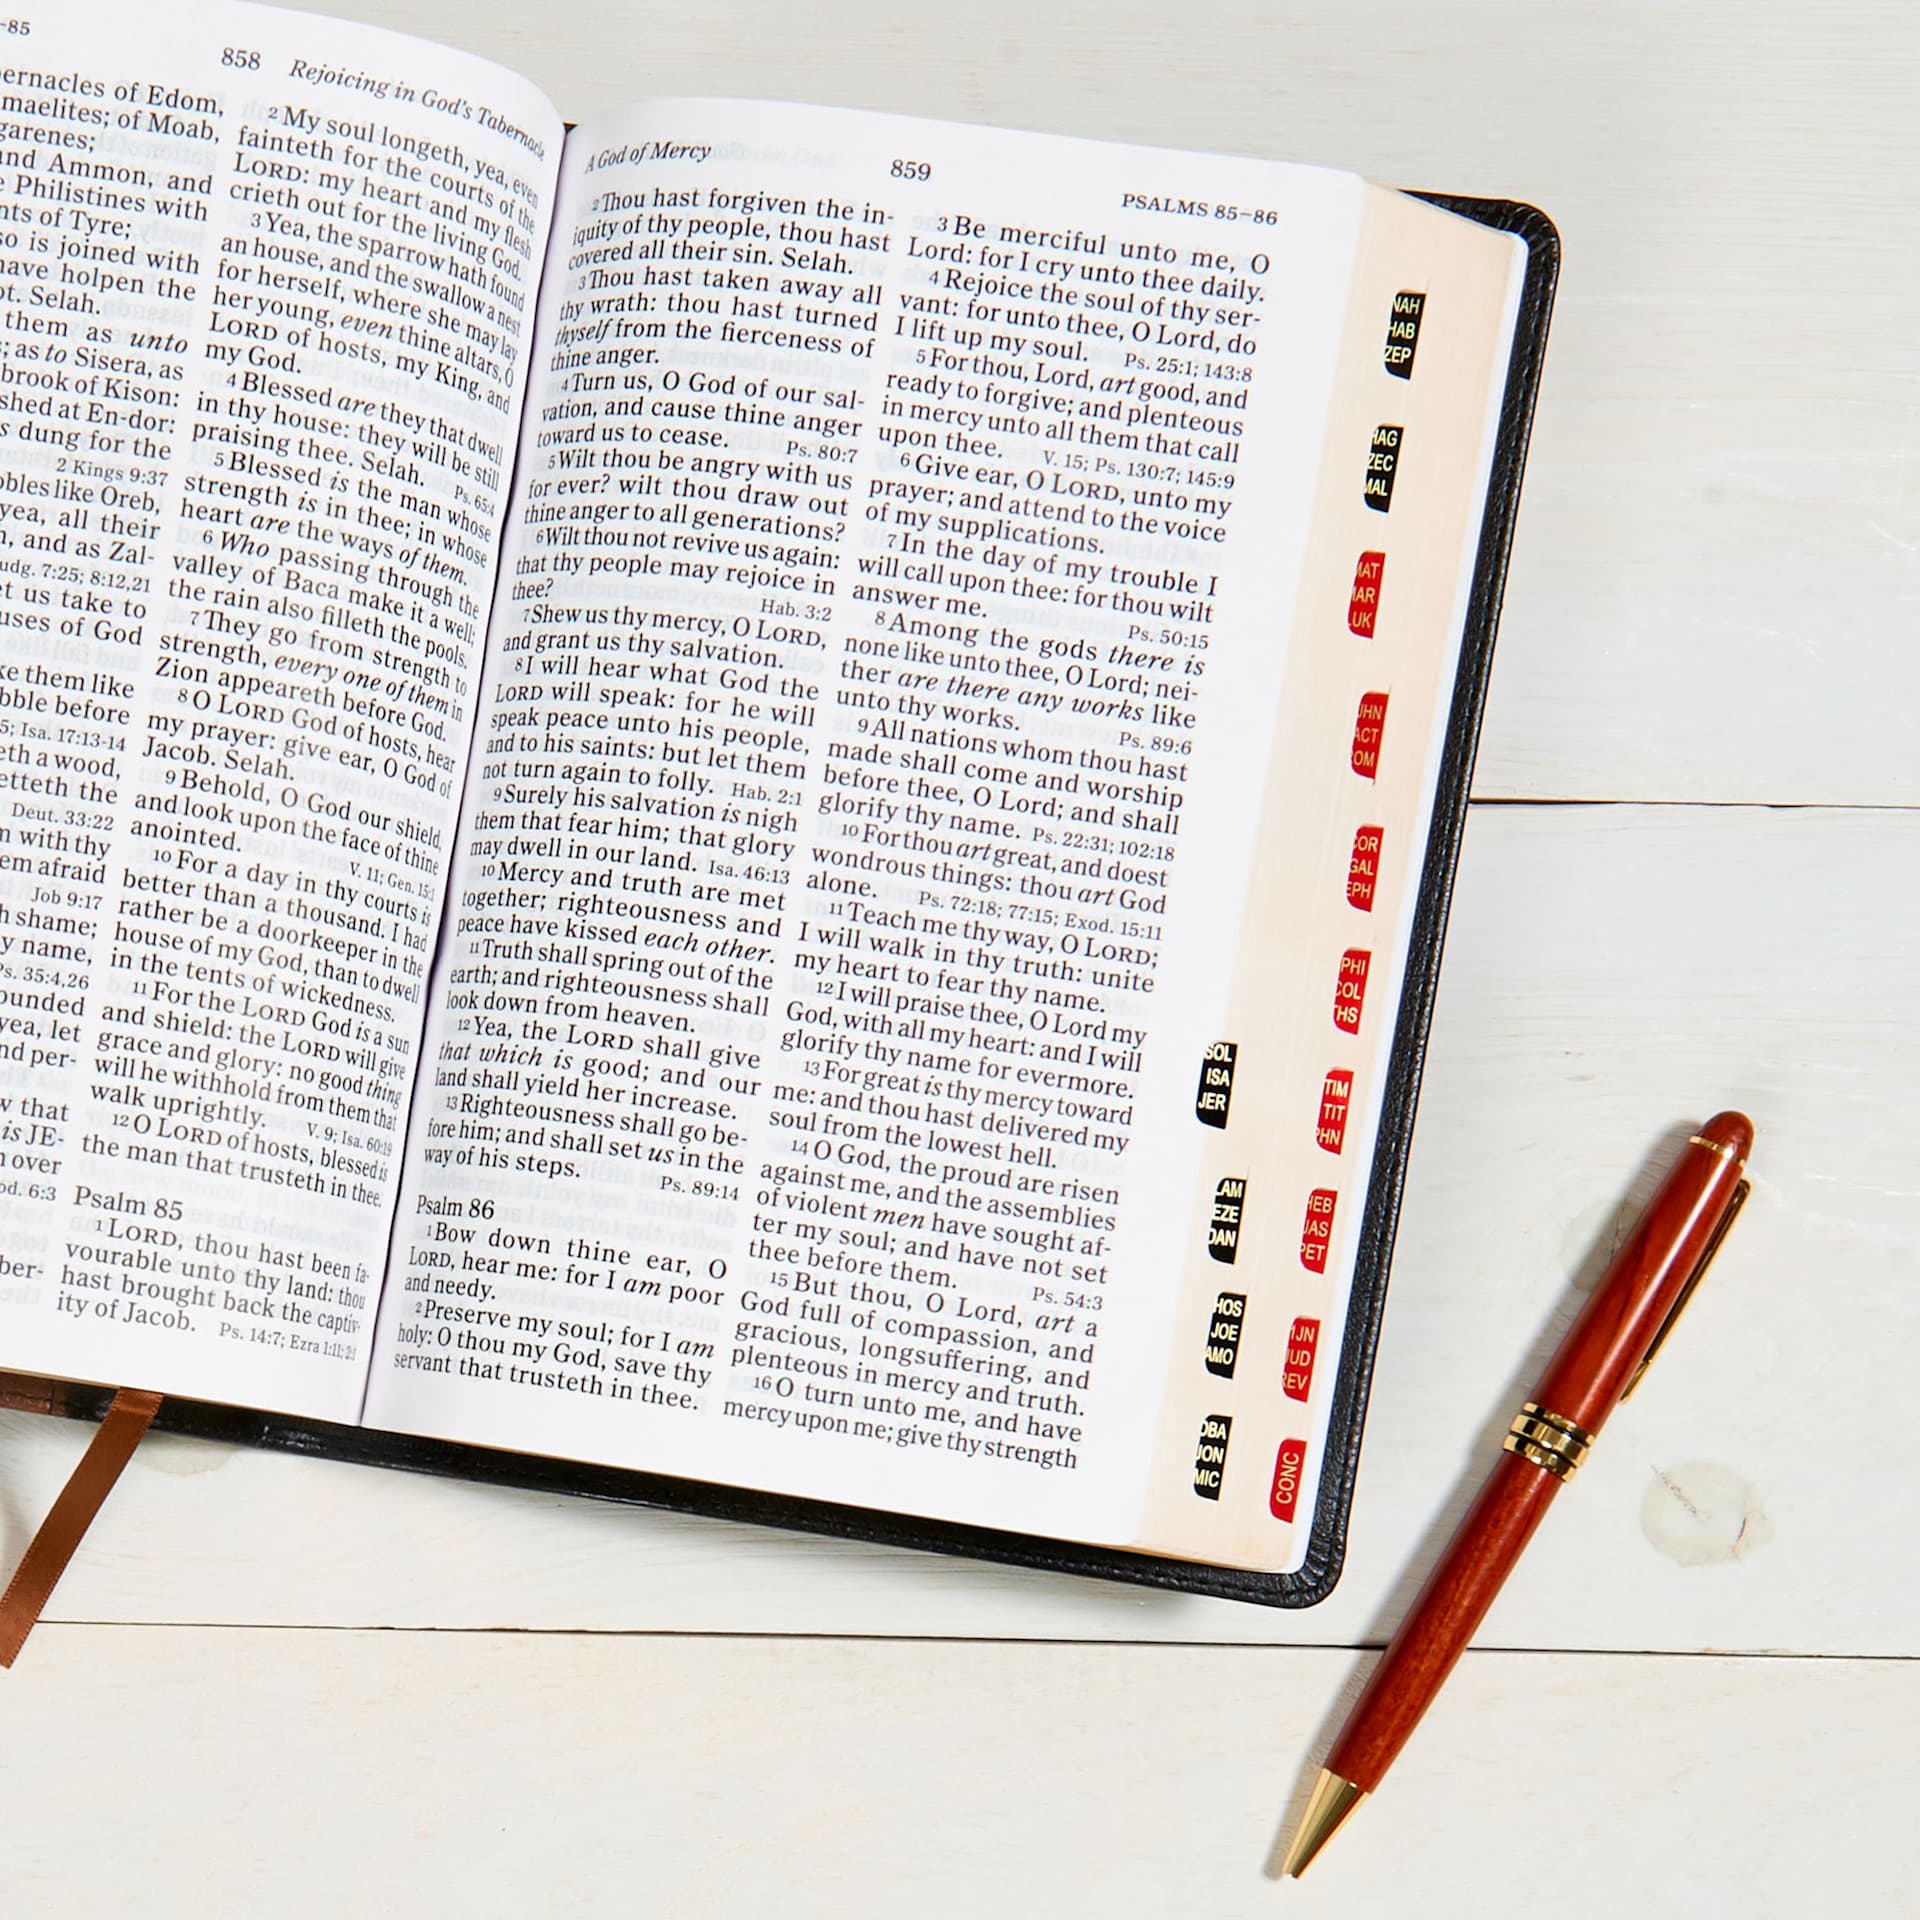 -85
858 Rejoicing in God's Tabernacle
ernacles of Edom,
maelites; of Moab,
garenes;
and Ammon, and
Philistines with
nts of Tyre;
so is joined with
have holpen the
ot. Selah.
them as unto
; as to Sisera, as
brook of Kison:
shed at En-dor:
s dung for the
2 Kings 9:37
obles like Oreb,
yea, all their
h, and as Zal-
udg. 7:25; 8:12,21
et us take to
uses of God
ke them like
bble before
5; Isa. 17:13-14
eth a wood,
etteth the
Deut. 33:22
m with thy
em afraid
Job 9:17
h shame;
y name,
Ps. 35:4,26
ounded
yea, let
nd per-
w that
is JE-
h over
od. 6:3
ber-
2 My soul longeth, yea, even
fainteth for the courts of the
LORD: my heart and my flesh
crieth out for the living God.
3 Yea, the sparrow hath found
an house, and the swallow a nest
for herself, where she may lay
her young, even thine altars, O
LORD of hosts, my King, and
my God.
4 Blessed are they that dwell
in thy house: they will be still
praising thee. Selah. Ps. 65:4
5 Blessed is the man whose
strength is in thee; in whose
heart are the ways of them.
6 Who passing through the
valley of Baca make it a well;
the rain also filleth the pools.
7 They go from strength to
strength, every one of them in
Zion appeareth before God.
8 O LORD God of hosts, hear
my prayer: give ear, O God of
Jacob. Selah.
9 Behold, O God our shield,
and look upon the face of thine
anointed. V. 11; Gen. 15:1
10 For a day in thy courts is
better than a thousand. I had
rather be a doorkeeper in the
house of my God, than to dwell
in the tents of wickedness.
11 For the LORD God is a sun
and shield: the LORD will give
grace and glory: no good thing
will he withhold from them that
walk uprightly. V. 9; Isa. 60:19
12 O LORD of hosts, blessed is
the man that trusteth in thee.
Psalm 85
1 LORD, thou hast been fa-
vourable unto thy land: thou
hast brought back the captiv-
ity of Jacob. Ps. 14:7; Ezra 1:11; 2:1
A God of Mercy 859 PSALMS 85–86
2 Thou hast forgiven the in-
iquity of thy people, thou hast
covered all their sin. Selah.
3 Thou hast taken away all
thy wrath: thou hast turned
thyself from the fierceness of
thine anger.
4 Turn us, O God of our sal-
vation, and cause thine anger
toward us to cease. Ps. 80:7
5 Wilt thou be angry with us
for ever? wilt thou draw out
thine anger to all generations?
6 Wilt thou not revive us again:
that thy people may rejoice in
thee? Hab. 3:2
7 Shew us thy mercy, O LORD,
and grant us thy salvation.
8 I will hear what God the
LORD will speak: for he will
speak peace unto his people,
and to his saints: but let them
not turn again to folly. Hab. 2:1
9 Surely his salvation is nigh
them that fear him; that glory
may dwell in our land. Isa. 46:13
10 Mercy and truth are met
together; righteousness and
peace have kissed each other.
11 Truth shall spring out of the
earth; and righteousness shall
look down from heaven.
12 Yea, the LORD shall give
that which is good; and our
land shall yield her increase.
13 Righteousness shall go be-
fore him; and shall set us in the
way of his steps. Ps. 89:14
Psalm 86
1 Bow down thine ear, O
LORD, hear me: for I am poor
and needy.
2 Preserve my soul; for I am
holy: O thou my God, save thy
servant that trusteth in thee.
3 Be merciful unto me, O
Lord: for I cry unto thee daily.
4 Rejoice the soul of thy ser-
vant: for unto thee, O Lord, do
I lift up my soul. Ps. 25:1; 143:8
5 For thou, Lord, art good, and
ready to forgive; and plenteous
in mercy unto all them that call
upon thee. V. 15; Ps. 130:7; 145:9
6 Give ear, O LORD, unto my
prayer; and attend to the voice
of my supplications.
7 In the day of my trouble I
will call upon thee: for thou wilt
answer me. Ps. 50:15
8 Among the gods there is
none like unto thee, O Lord; nei-
ther are there any works like
unto thy works. Ps. 89:6
9 All nations whom thou hast
made shall come and worship
before thee, O Lord; and shall
glorify thy name. Ps. 22:31; 102:18
10 For thou art great, and doest
wondrous things: thou art God
alone. Ps. 72:18; 77:15; Exod. 15:11
11 Teach me thy way, O LORD;
I will walk in thy truth: unite
my heart to fear thy name.
12 I will praise thee, O Lord my
God, with all my heart: and I will
glorify thy name for evermore.
13 For great is thy mercy toward
me: and thou hast delivered my
soul from the lowest hell.
14 O God, the proud are risen
against me, and the assemblies
of violent men have sought af-
ter my soul; and have not set
thee before them. Ps. 54:3
15 But thou, O Lord, art a
God full of compassion, and
gracious, longsuffering, and
plenteous in mercy and truth.
16 O turn unto me, and have
mercy upon me; give thy strength
SOL
ISA
JER
LAM
EZE
DAN
HOS
JOE
AMO
OBA
JON
MIC
NAH
HAB
ZEP
HAG
ZEC
MAL
MAT
MAR
LUK
JHN
ACT
ROM
COR
GAL
EPH
PHI
COL
THS
TIM
TIT
PHN
HEB
JAS
PET
1JN
JUD
REV
CONC